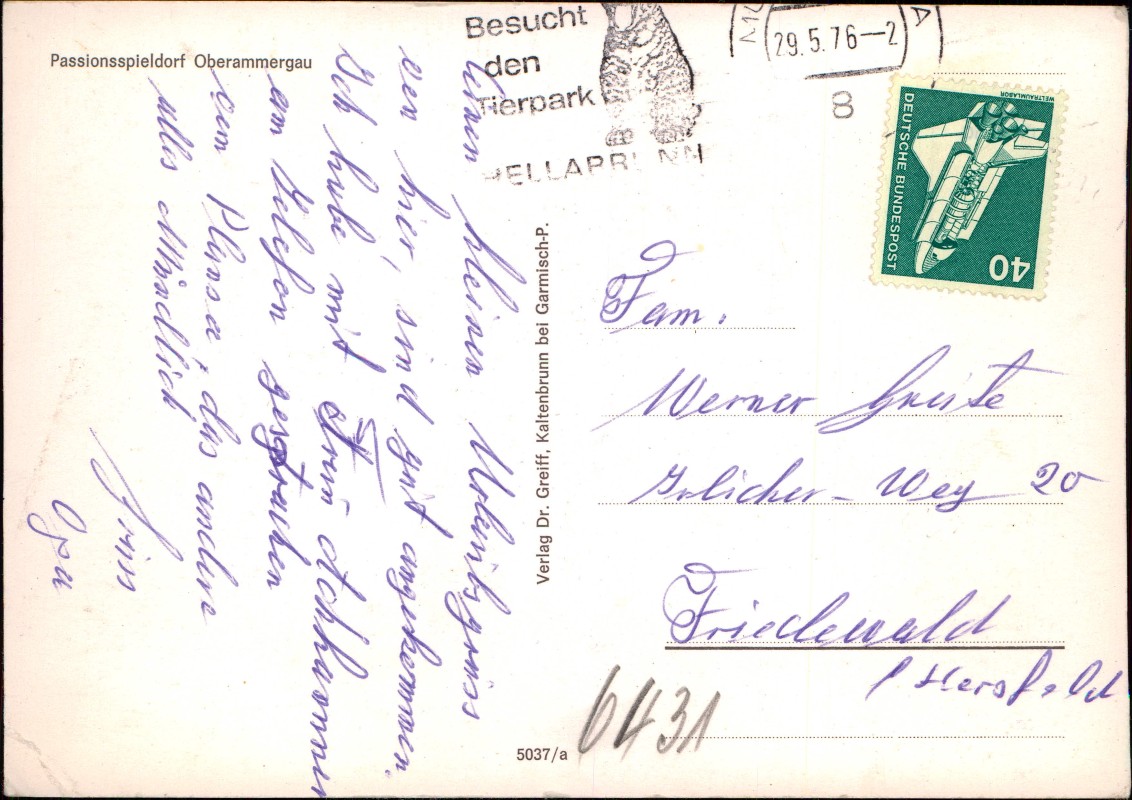 Passionsspieldorf Oberammergau
Besucht
den
Tierpark
HELLABRUNN
29.5.76-2
8
DEUTSCHE BUNDESPOST
WELTRAUMLABOR
40
kleinen Urlaubsgruss
von hier, sind gut angekommen.
Ich habe mit Frau
am Telefon gesprochen
alles Mündlich
Gruss
Opa
Verlag Dr. Greiff, Kaltenbrunn bei Garmisch-P.
Fam.
Werner
Weg 20
Friedewald
/ Hersfeld
6431
5037/a